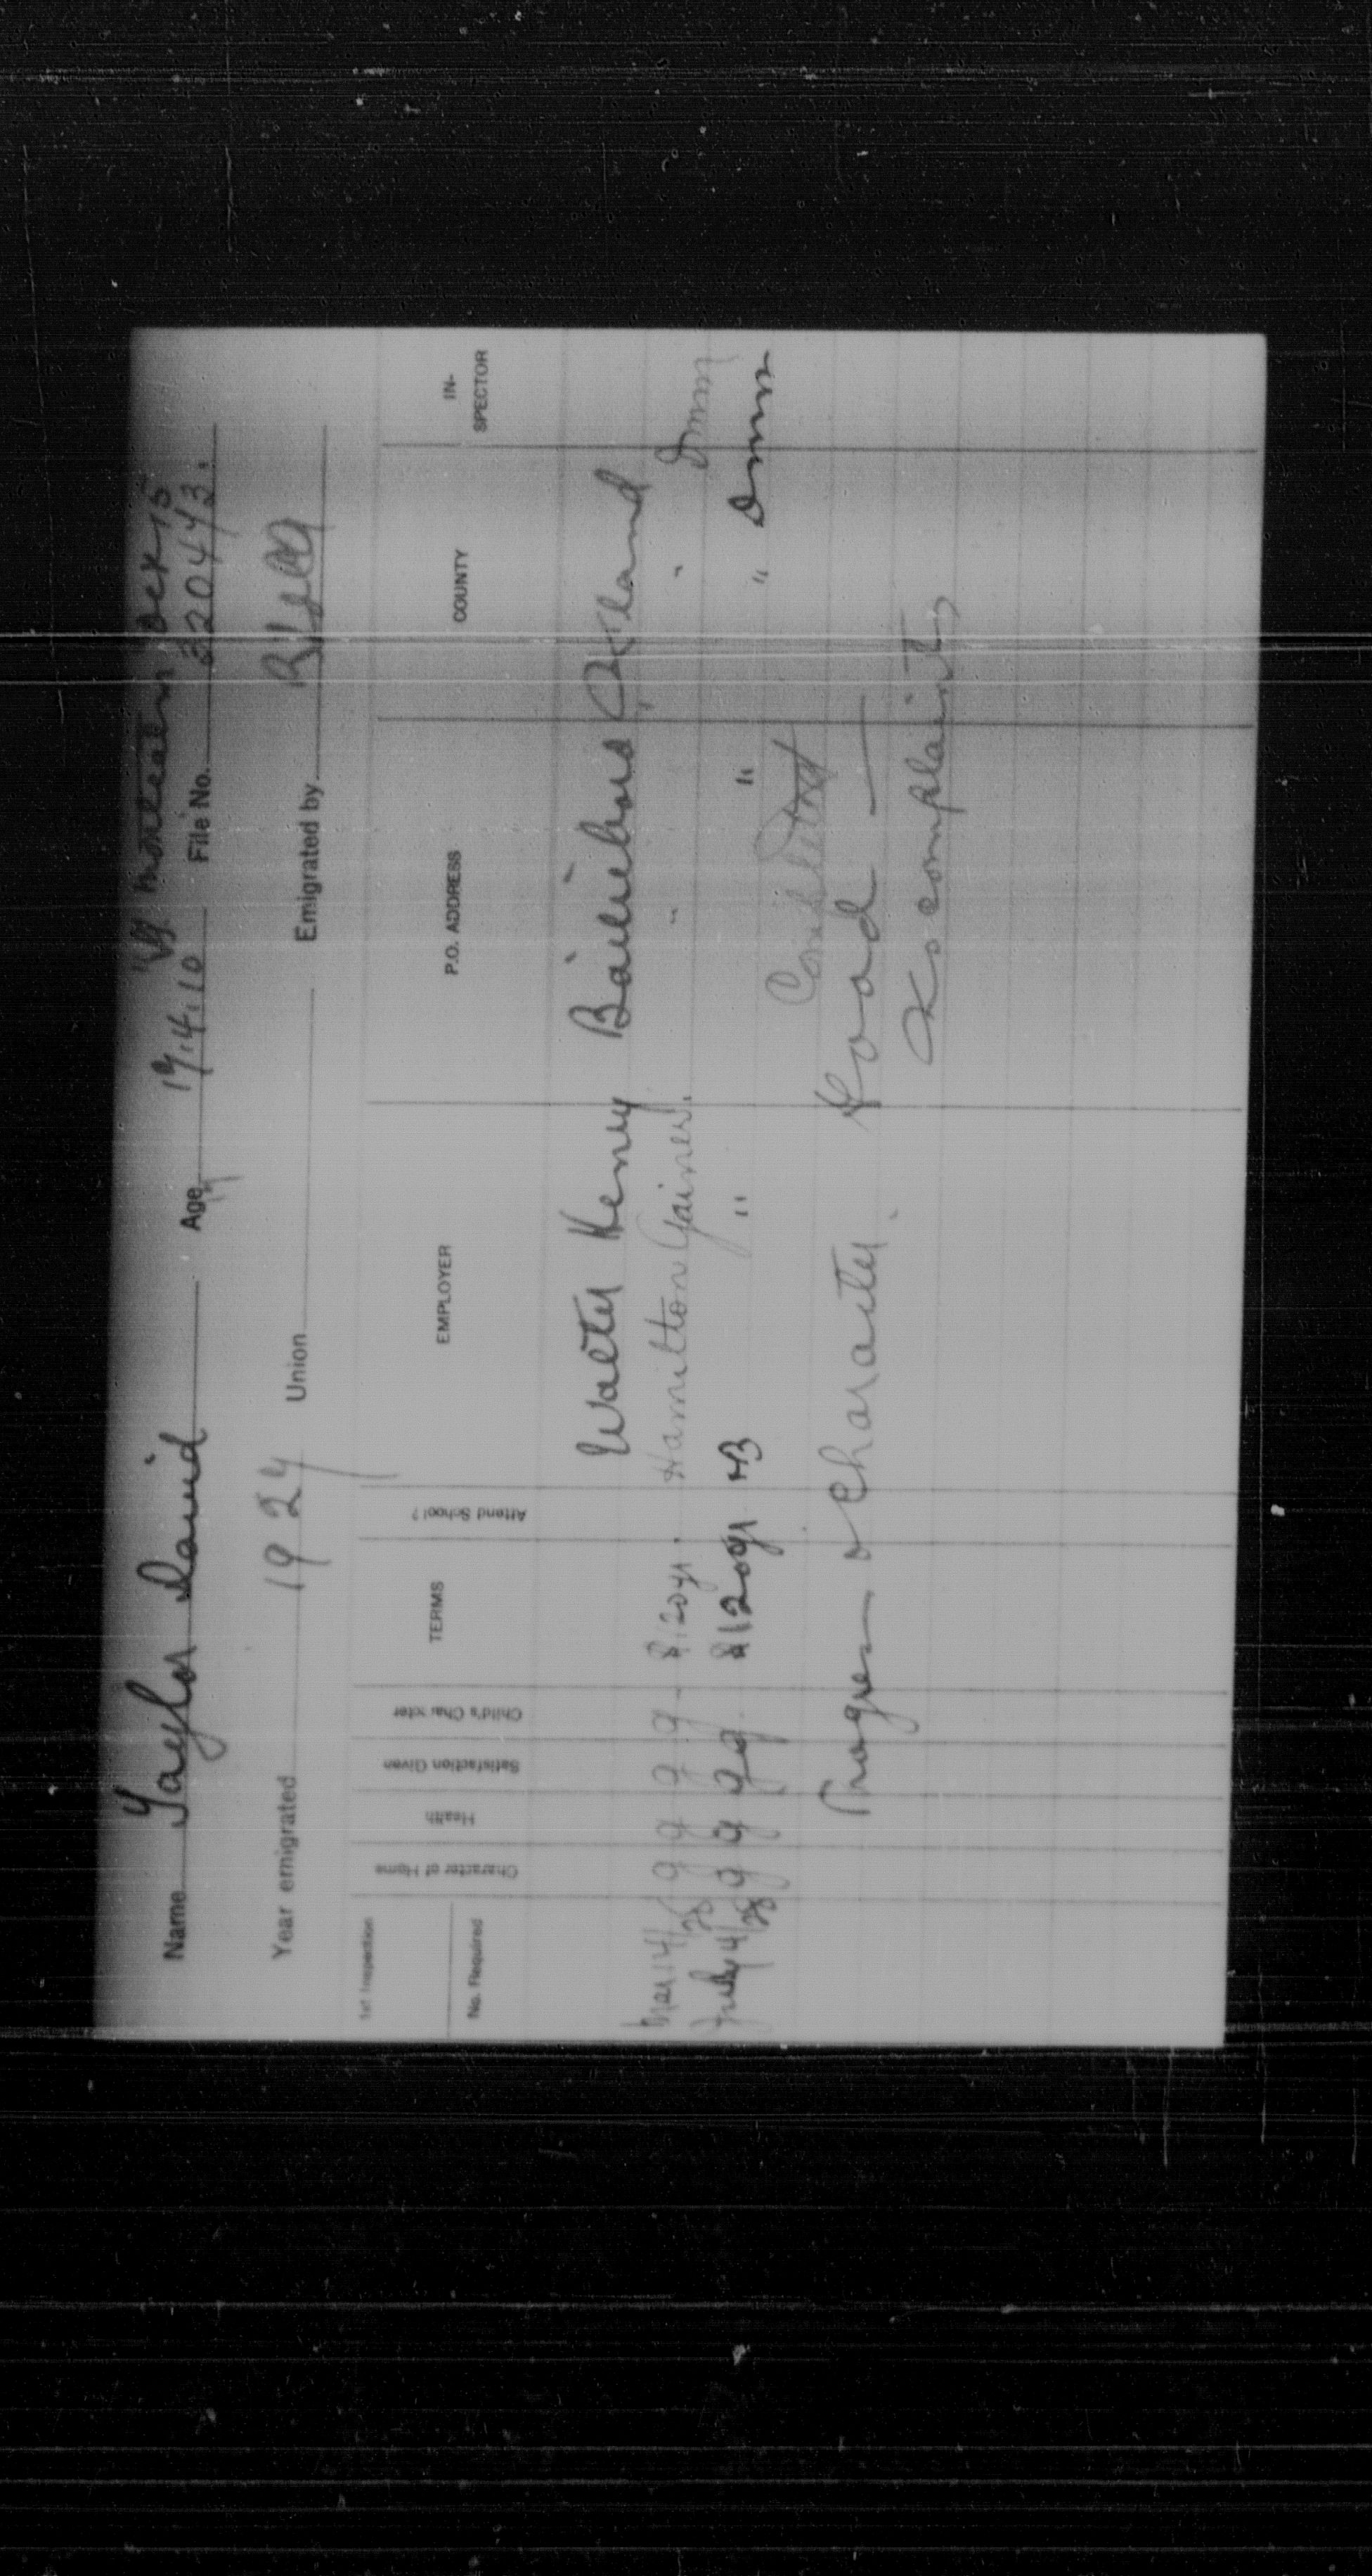 SS Montcalm Oct 15
Name Taylor David Age 17 19.4.10 File No. 220443.
Year emigrated 1924 Union Emigrated by
1st Inspection
No. Required Character of Home Health Satisfaction Given Child's Character TERMS Attend School? EMPLOYER P.O. ADDRESS COUNTY IN-SPECTOR
Henry
Mar 14/28 g g g g. $120 yr. Hamilton Gaines. " "
July 4/28 g g g g. $120 yr HB " " "
Completed
Progress & Character. Good —
No complaints